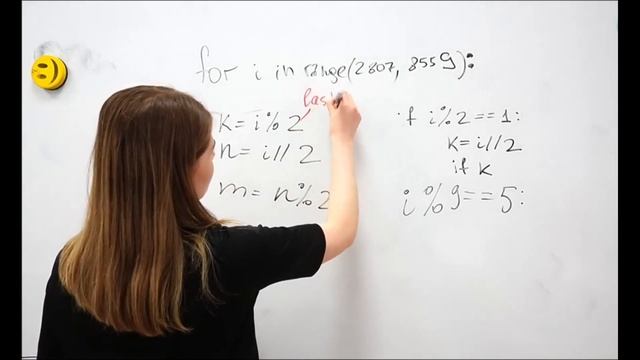 for i in range(2807, 8559):
las
k = i % 2
n = i // 2
m = n % 2
if i % 2 == 1:
k = i // 2
if k
i % 9 == 5: